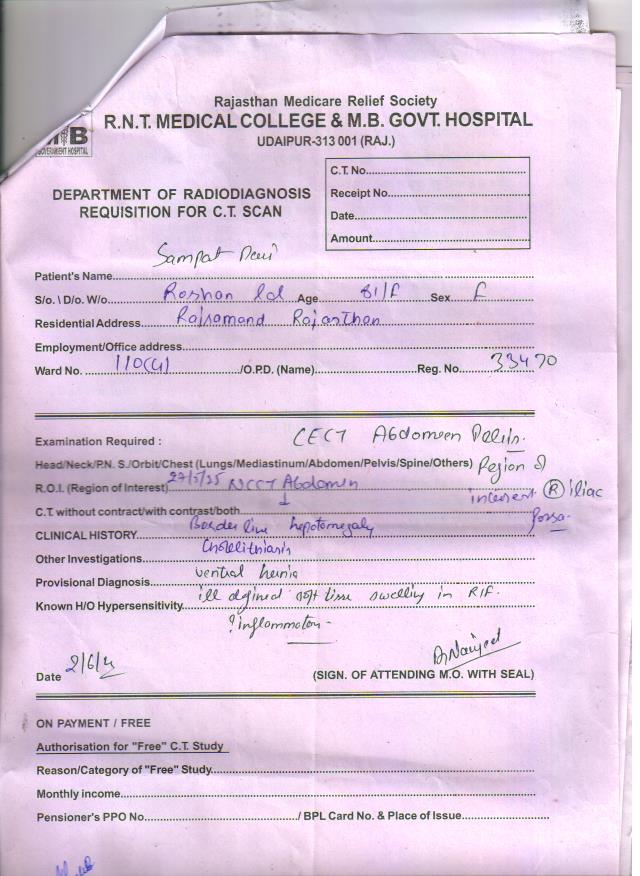 Rajasthan Medicare Relief Society
R.N.T. MEDICAL COLLEGE & M.B. GOVT. HOSPITAL
UDAIPUR-313 001 (RAJ.)
MB
GOVERNMENT HOSPITAL
DEPARTMENT OF RADIODIAGNOSIS
REQUISITION FOR C.T. SCAN
C.T. No.
Receipt No.
Date
Amount
Patient's Name Sampat Devi
S/o. \ D/o. W/o Roshan lal Age 81/F Sex F
Residential Address Rajsamand Rajasthan
Employment/Office address
Ward No. 110(4) /O.P.D. (Name) Reg. No. 33470
Examination Required : CECT Abdomen Pelvis.
Head/Neck/P.N. S./Orbit/Chest (Lungs/Mediastinum/Abdomen/Pelvis/Spine/Others) Region of
R.O.I. (Region of Interest) 27/5/25 NCCT Abdomen interest (R) iliac
C.T. without contract/with contrast/both ↓ fossa.
CLINICAL HISTORY Border line hepatomegaly
Other Investigations Cholelithiasis
Provisional Diagnosis ventral hernia
Known H/O Hypersensitivity ill defined soft tissue swelling in RIF.
? inflammation
Date 2/6/
(SIGN. OF ATTENDING M.O. WITH SEAL)
ON PAYMENT / FREE
Authorisation for "Free" C.T. Study
Reason/Category of "Free" Study
Monthly income
Pensioner's PPO No. / BPL Card No. & Place of Issue